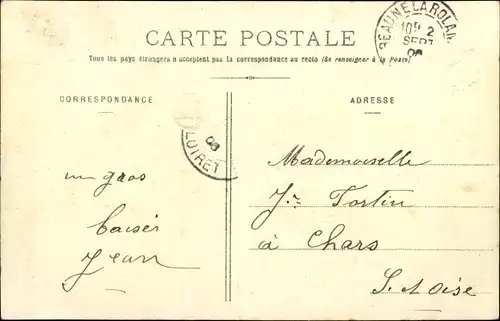 CARTE POSTALE
Tous les pays étrangers n'acceptent pas la correspondance au recto (Se renseigner à la Poste)
CORRESPONDANCE
ADRESSE
BEAUNE LA ROLAN
10 2
SEPT
06
LOIRET
06
un gros
baiser
Jean
Mademoiselle
Jne Fortin
à Chars
S. et Oise